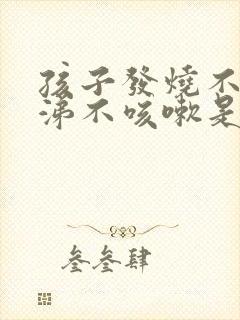 孩子發燒不
涕不咳嗽是
叁叁肆